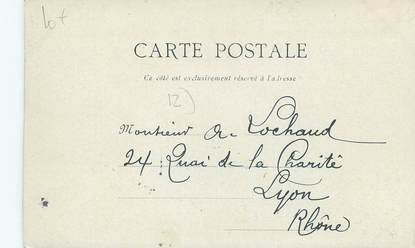 lot
CARTE POSTALE
Ce côté est exclusivement réservé à l'adresse
12)
Monsieur A. Lochaud
24 Quai de la Charité
Lyon
Rhône